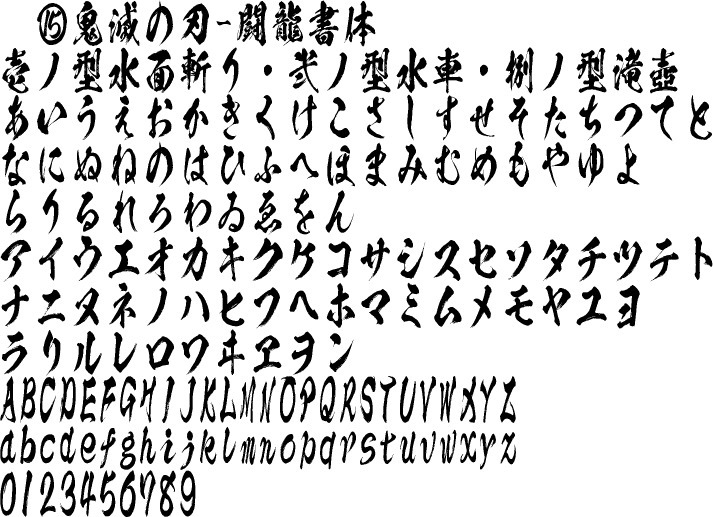 ⑮鬼滅の刃-闘龍書体
壱ノ型水面斬り・弐ノ型水車・捌ノ型滝壺
あいうえおかきくけこさしすせそたちつてと
なにぬねのはひふへほまみむめもやゆよ
らりるれろわゐゑをん
アイウエオカキクケコサシスセソタチツテト
ナニヌネノハヒフヘホマミムメモヤユヨ
ラリルレロワヰヱヲン
ABCDEFGHIJKLMNOPQRSTUVWXYZ
abcdefghijklmnopqrstuvwxyz
0123456789